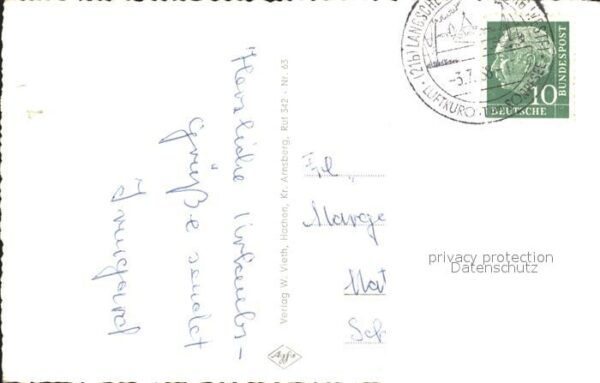 "Herzliche Urlaubs-
grüße sendet
Irmgard
Verlag W. Vieth, Hachen, Kr. Arnsberg, Ruf 342 - Nr. 63
Agfa
(21b) LANGSCHE
-3.7.
LUFTKURO
10
DEUTSCHE
BUNDESPOST
Frl.
Marge
privacy protection
Datenschutz